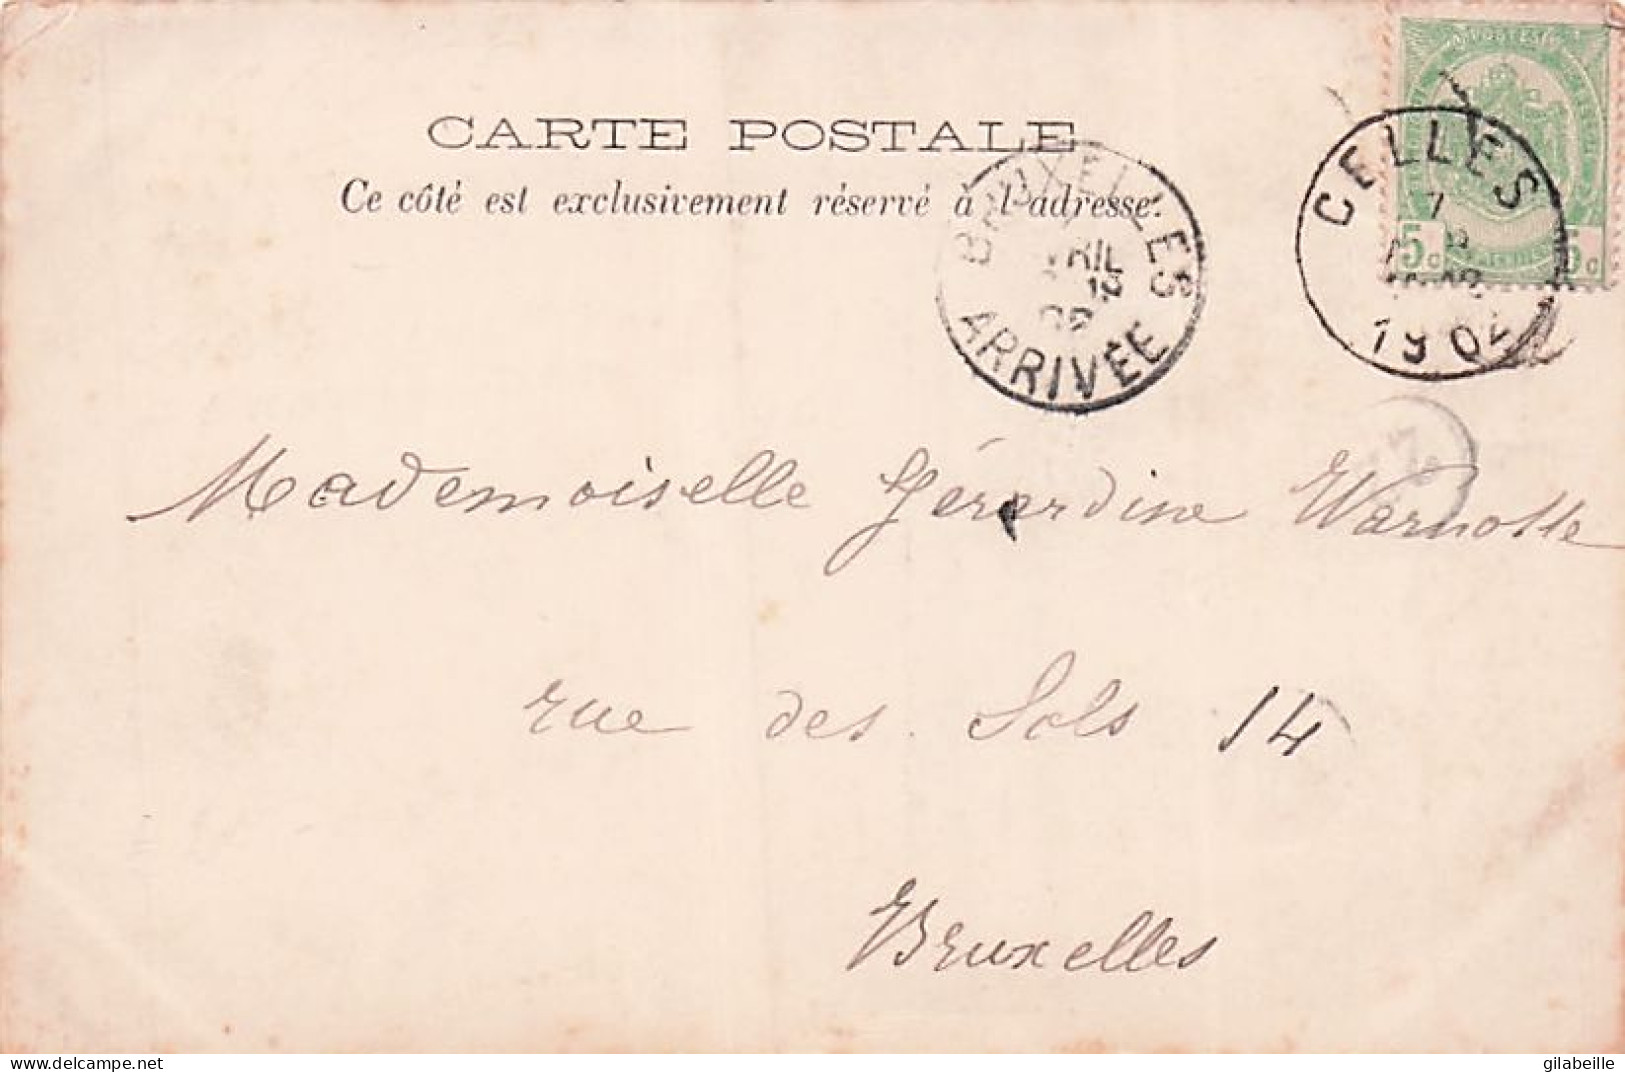 CARTE POSTALE
Ce côté est exclusivement réservé à l'adresse.
BRUXELLES
ARRIVÉE
CELLES
7
1902
POSTES
5c 5c
Mademoiselle Gérardine Warnotte
rue des Sols 14
Bruxelles
delcampe.net
gilabeille